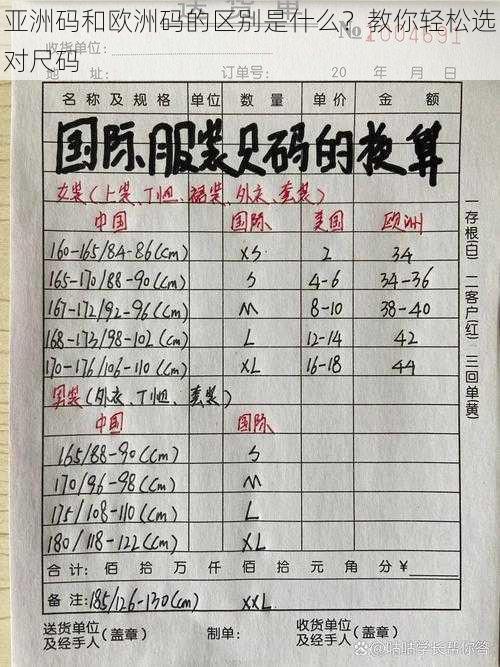 亚洲码和欧洲码的区别是什么？教你轻松选
对尺码
送货单
No 2004691
地址: 订单号: 20 年 月 日
名称及规格 单位 数量 单价 金额
国际服装尺码的换算
女装(上装、T恤、裙装、外衣、套装)
中国 国际 美国 欧洲
160-165/84-86(cm) XS 2 34
165-170/88-90(cm) S 4-6 34-36
167-172/92-96(cm) M 8-10 38-40
168-173/98-102(cm) L 12-14 42
170-176/106-110(cm) XL 16-18 44
男装(外衣、T恤、套装)
中国 国际
165/88-90(cm) S
170/96-98(cm) M
175/108-110(cm) L
180/118-122(cm) XL
合计: 佰 拾 万 仟 佰 拾 元 角 分¥
备注: 185/126-130(cm) XXL
送货单位
及经手人(盖章) 制单: 收货单位
及经手人(盖章)
一存根(白) 二客户(红) 三回单(黄)
@咕咕学长帮你答